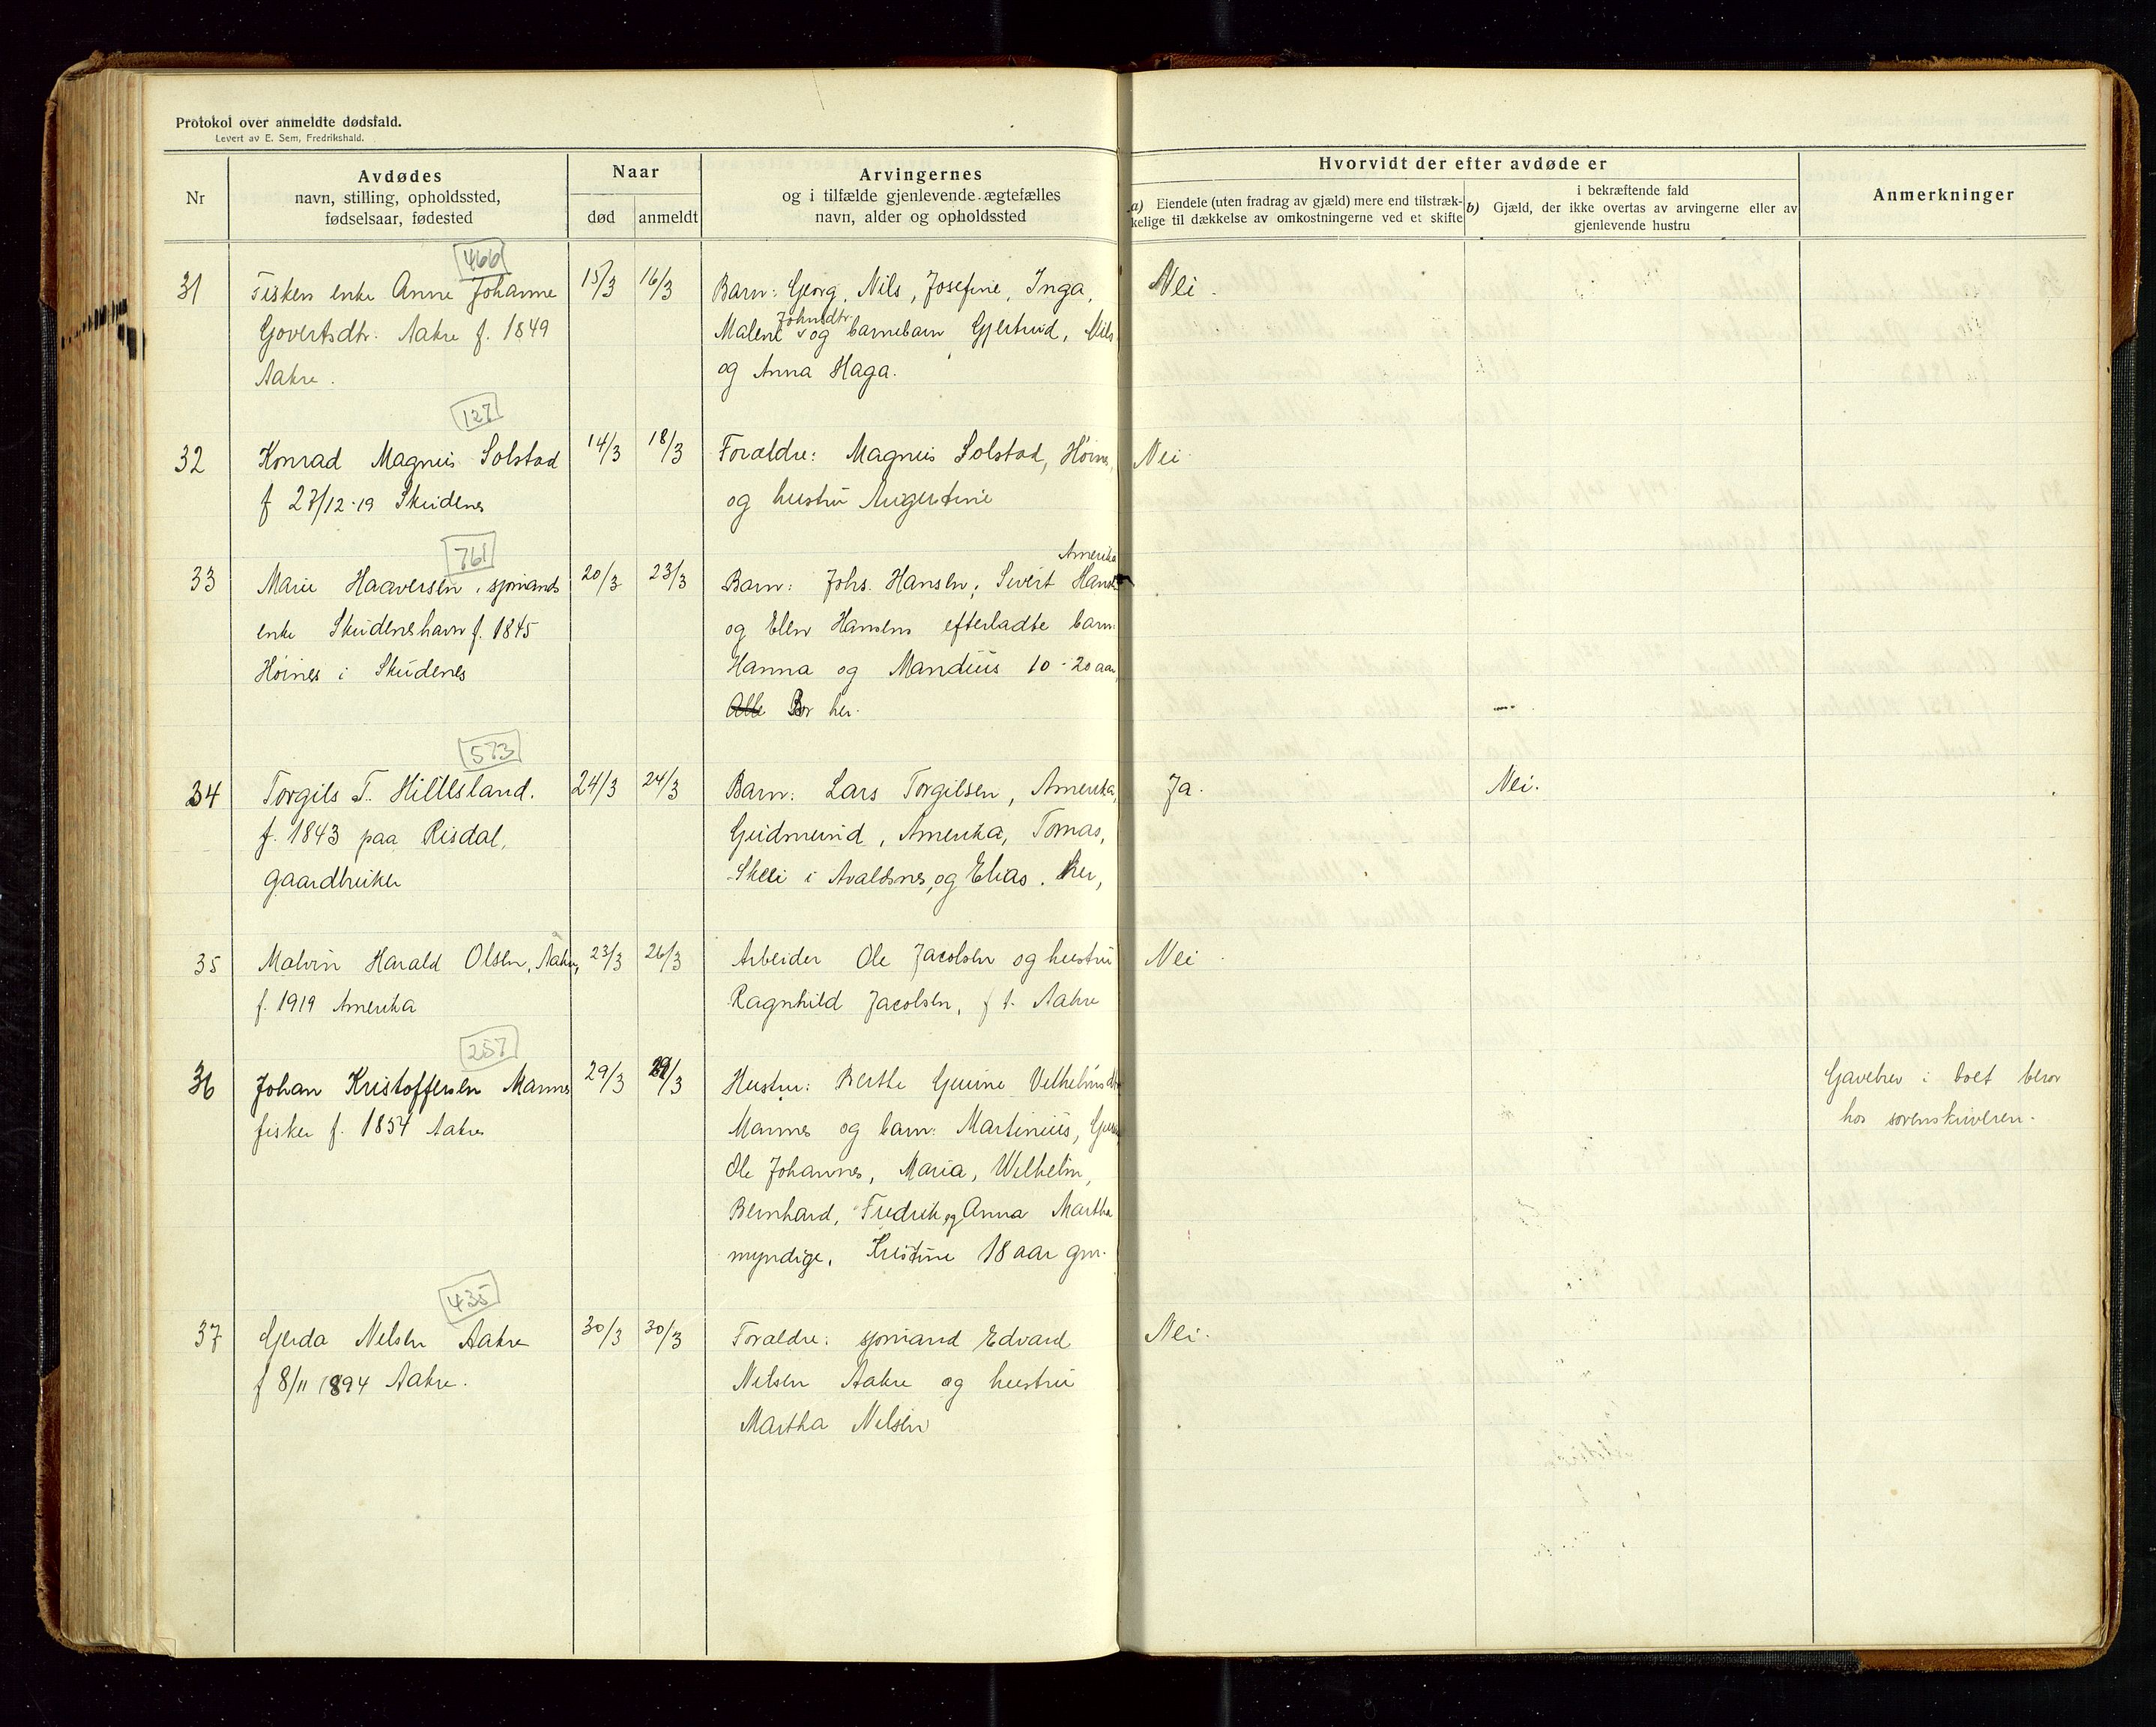 Protokol over anmeldte dødsfald.
Levert av E. Sem, Fredrikshald.
Nr
Avdødes
navn, stilling, opholdssted,
fødselsaar, fødested
Naar
død
anmeldt
Arvingernes
og i tilfælde gjenlevende ægtefælles
navn, alder og opholdssted
Hvorvidt der efter avdøde er
a) Eiendele (uten fradrag av gjæld) mere end tilstræk-
kelige til dækkelse av omkostningerne ved et skifte
i bekræftende fald
b) Gjæld, der ikke overtas av arvingerne eller av
gjenlevende hustru
Anmerkninger
466
31
Fisker enke Anne Johanne
Govertsdtr. Aakre f. 1849
Aakre.
15/3
16/3
Barn: Georg, Nils, Josefine, Inga,
Johnsdtr.
Malene og barnebarn Gjertrud, Nils
og Anna Haga.
Nei
127
32
Konrad Magnus Solstad
f 27/12-19 Skudenes
14/3
18/3
Forældre: Magnus Solstad, Høines,
og hustru Augustine
Nei
761
33
Marie Haaversen, sjømands
enke Skudeneshavn f. 1845
Høines i Skudenes
20/3
23/3
Amerika
Barn: Johs. Hansen; Sivert Hansen
og Elen Hansens efterladte barn:
Hanna og Mandius 10-20 aar,
Alle Bor her.
573
34
Torgils T. Hillesland.
f. 1843 paa Risdal,
gaardbruker
24/3
24/3
Barn: Lars Torgilsen, Amerika,
Gudmund, Amerika, Tomas,
i Avaldsnes, og Elias. her,
Ja.
Nei.
35
Malvin Harald Olsen, Aakre,
f. 1919 Amerika
23/3
26/3
Arbeider Ole Jacobsen og hustru
Ragnhild Jacobsen, f t. Aakre
Nei
257
36
Johan Kristoffersen Mannes
fisker f. 1854 Aakre
29/3
29/3
Hustru: Berthe Gurine Vilhelmsdtr
Mannes og barn: Martinius,
Ole Johannes, Maria, Wilhelm,
Bernhard, Fredrik og Anna Martha
myndige, Kristine 18 aar gm.
Gavebrev i boet beror
hos sorenskriveren.
435
37
Gerda Nilsen Aakre
f 8/11 1894 Aakre.
30/3
30/3
Forældre: sjømand Edvard
Nilsen Aakre og hustru
Martha Nilsen
Nei.